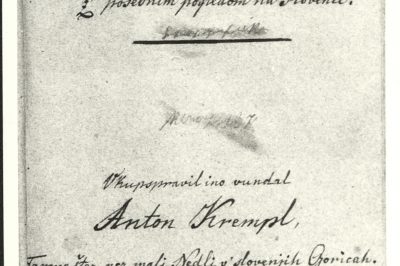 posebnim pogledom na Slovence.
Vkupspravil ino vundal
Anton Krempl,
per mali Nedli v' slovenjih Goricah.